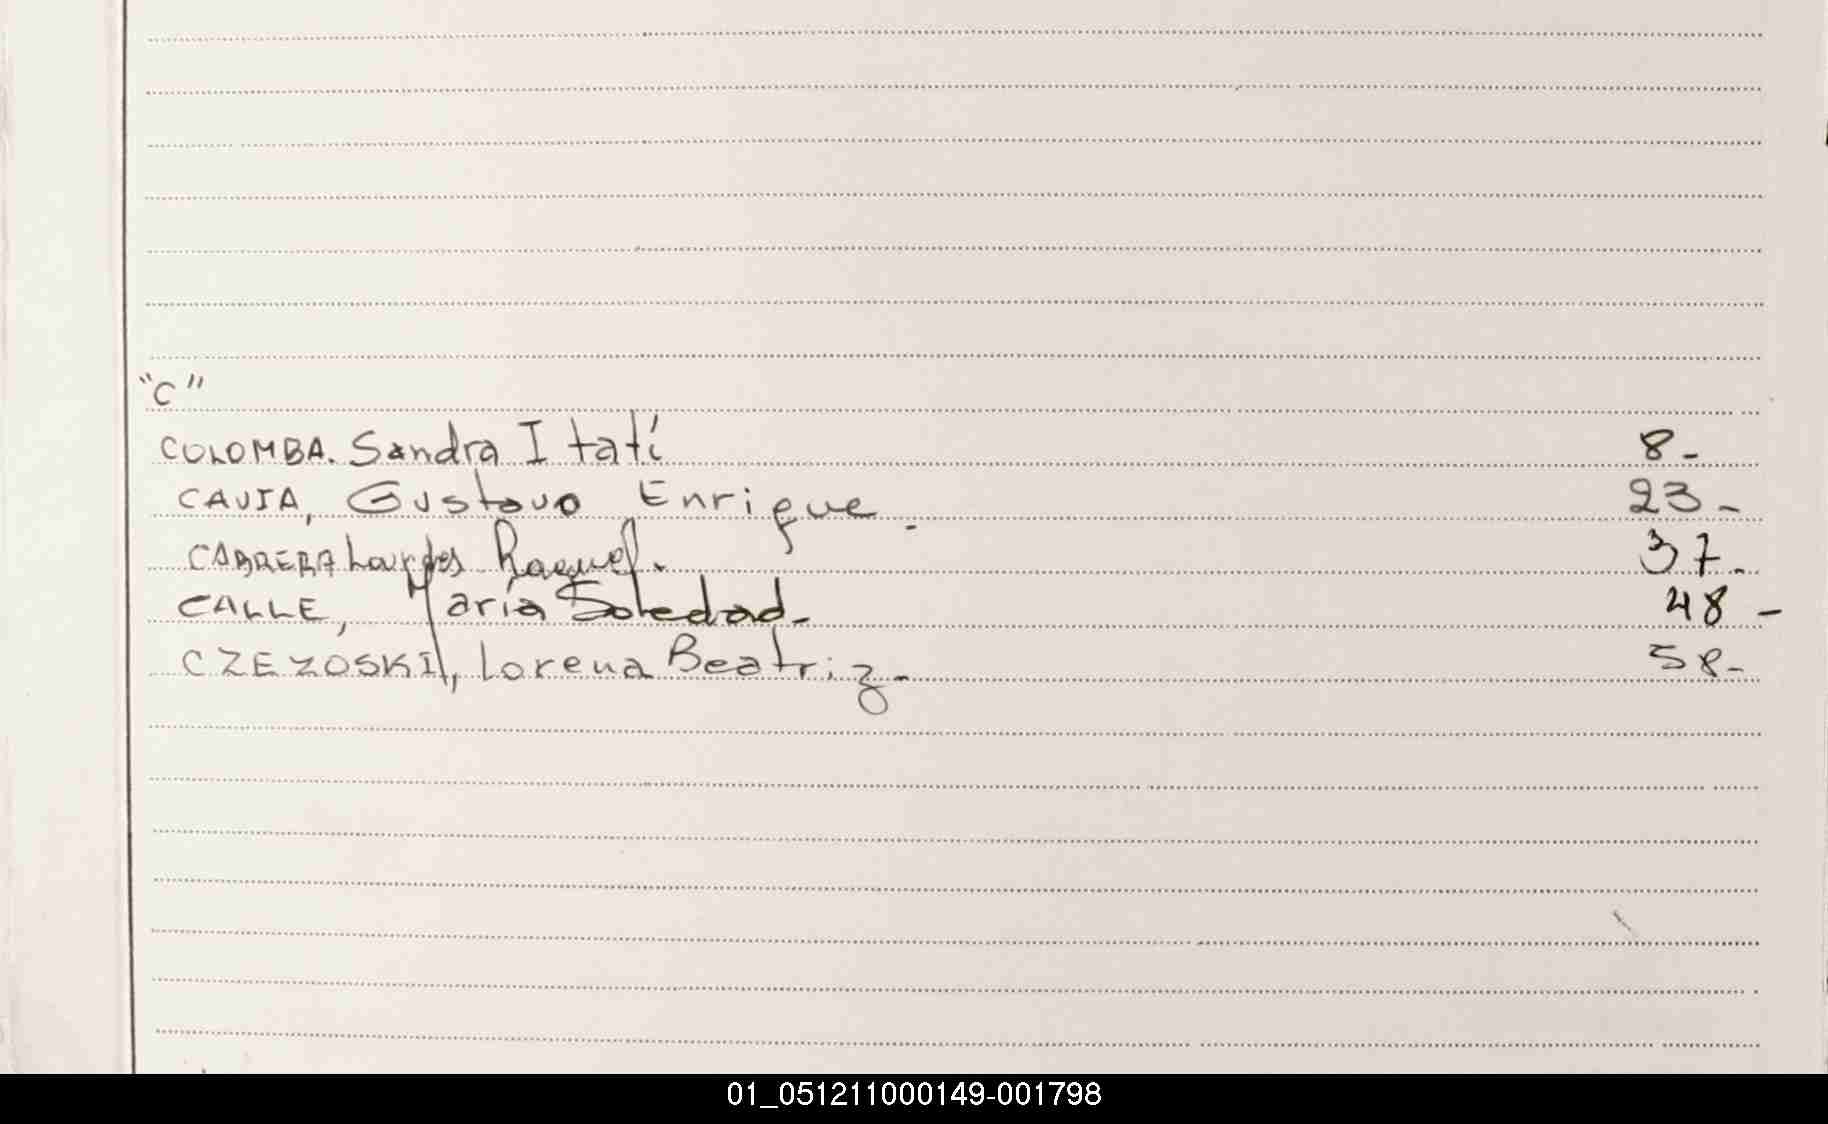 "C"
COLOMBA. Sandra Itatí 8-
CAVIA, Gustavo Enrique. 23-
CABRERA Lourdes Raquel. 37.
CALLE, María Soledad- 48-
CZEZOSKI, Lorena Beatriz- 58-
01_051211000149-001798